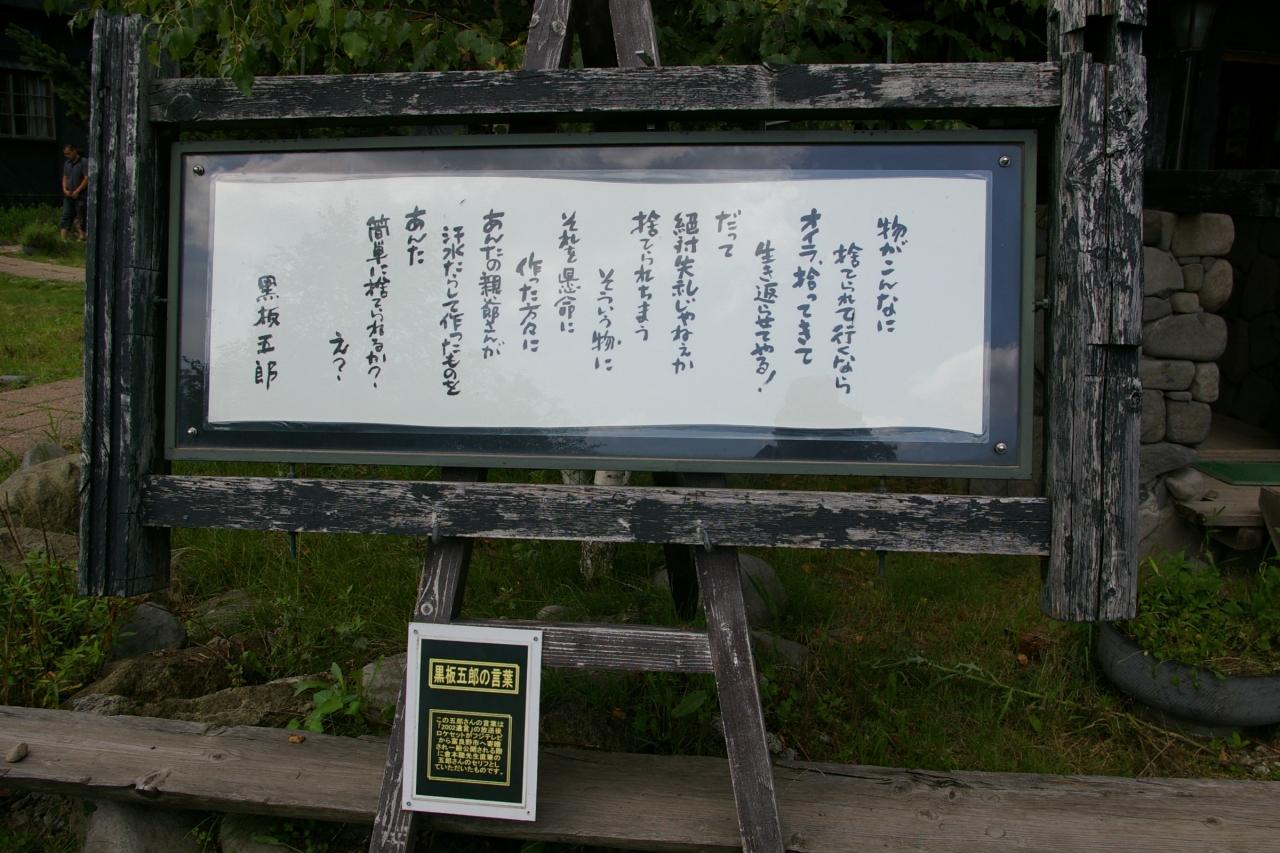 物がこんなに
捨てられて行くなら
オイラ、拾ってきて
生き返らせてやる！
だって
絶対失礼じゃねえか
捨てられちまう
そういう物に
それを懸命に
作った方々に
あんたの親爺さんが
汗水たらして作ったものを
あんた
簡単に捨てられるか？
え？
黒板五郎
黒板五郎の言葉
この五郎さんの言葉は
「2002遺言」の放送後
ロケセットがフジテレビ
から富良野市へ寄贈
され一般公開される際
に倉本聰先生直筆の
五郎さんのセリフとし
ていただいたものです。